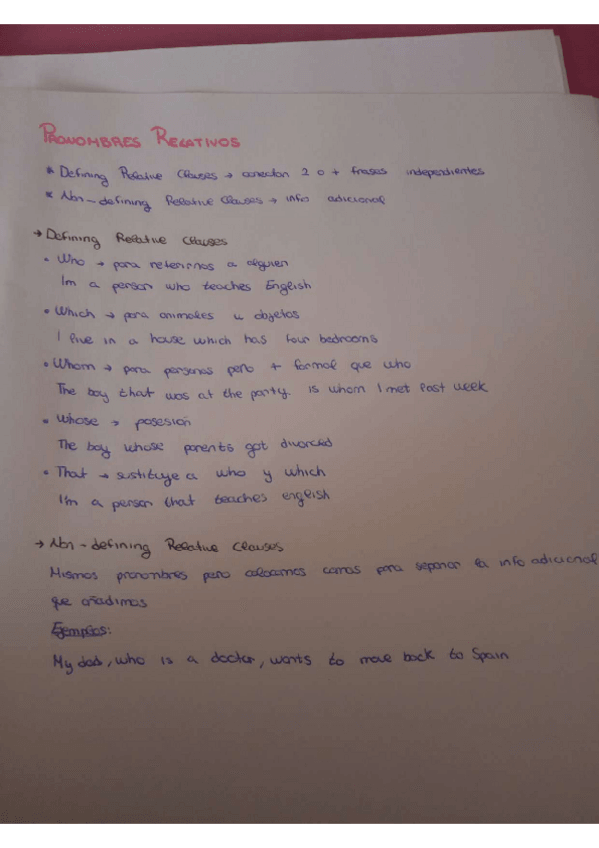 PRONOMBRES RELATIVOS
* Defining Relative Clauses → conectan 2 o + frases independientes
* Non-defining Relative Clauses → info adicional
→ Defining Relative Clauses
• Who → para referirnos a alguien
Im a person who teaches English
• Which → para animales u objetos
I live in a house which has four bedrooms
• Whom → para personas pero + formal que who
The boy that was at the party. is whom I met last week
• Whose → posesión
The boy whose parents got divorced
• That → sustituye a who y which
I'm a person that teaches english
→ Non-defining Relative Clauses
Mismos pronombres pero colocamos comas para separar la info adicional
que añadimos
Ejemplos:
My dad, who is a doctor, wants to move back to Spain